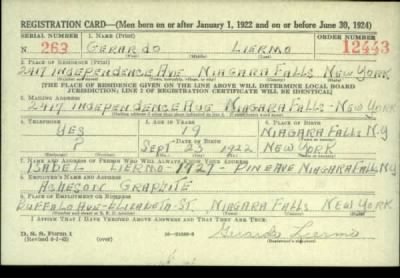 REGISTRATION CARD—(Men born on or after January 1, 1922 and on or before June 30, 1924)
SERIAL NUMBER 1. NAME (Print) ORDER NUMBER
N 263 GERARDO LIERMO 12443
(First) (Middle) (Last)
2. PLACE OF RESIDENCE (Print)
2417 INDEPENDENCE AVE NIAGARA FALLS NEW YORK
(Number and street) (Town, township, village, or city) (County) (State)
[THE PLACE OF RESIDENCE GIVEN ON THE LINE ABOVE WILL DETERMINE LOCAL BOARD
JURISDICTION; LINE 2 OF REGISTRATION CERTIFICATE WILL BE IDENTICAL]
3. MAILING ADDRESS
2417 INDEPENDENCE AVE NIAGARA FALLS - NEW YORK
4. TELEPHONE 5. AGE IN YEARS 6. PLACE OF BIRTH
YES 19 NIAGARA FALLS N.Y
DATE OF BIRTH
? SEPT 23 1922 NEW YORK
7. NAME AND ADDRESS OF PERSON WHO WILL ALWAYS KNOW YOUR ADDRESS
ISABEL LIERMO - 1927 - PINE AVE NIAGARA FALLS N.Y
8. EMPLOYER'S NAME AND ADDRESS
ACHESON GRAPHITE
9. PLACE OF EMPLOYMENT OR BUSINESS
BUFFALO AVE - ELIZABETH ST. NIAGARA FALLS NEW YORK
(Number and street or R. F. D. number) (Town) (County) (State)
I AFFIRM THAT I HAVE VERIFIED ABOVE ANSWERS AND THAT THEY ARE TRUE.
D. S. S. Form 1 Gerardo Liermo
(Revised 6-9-41) (Registrant's signature)